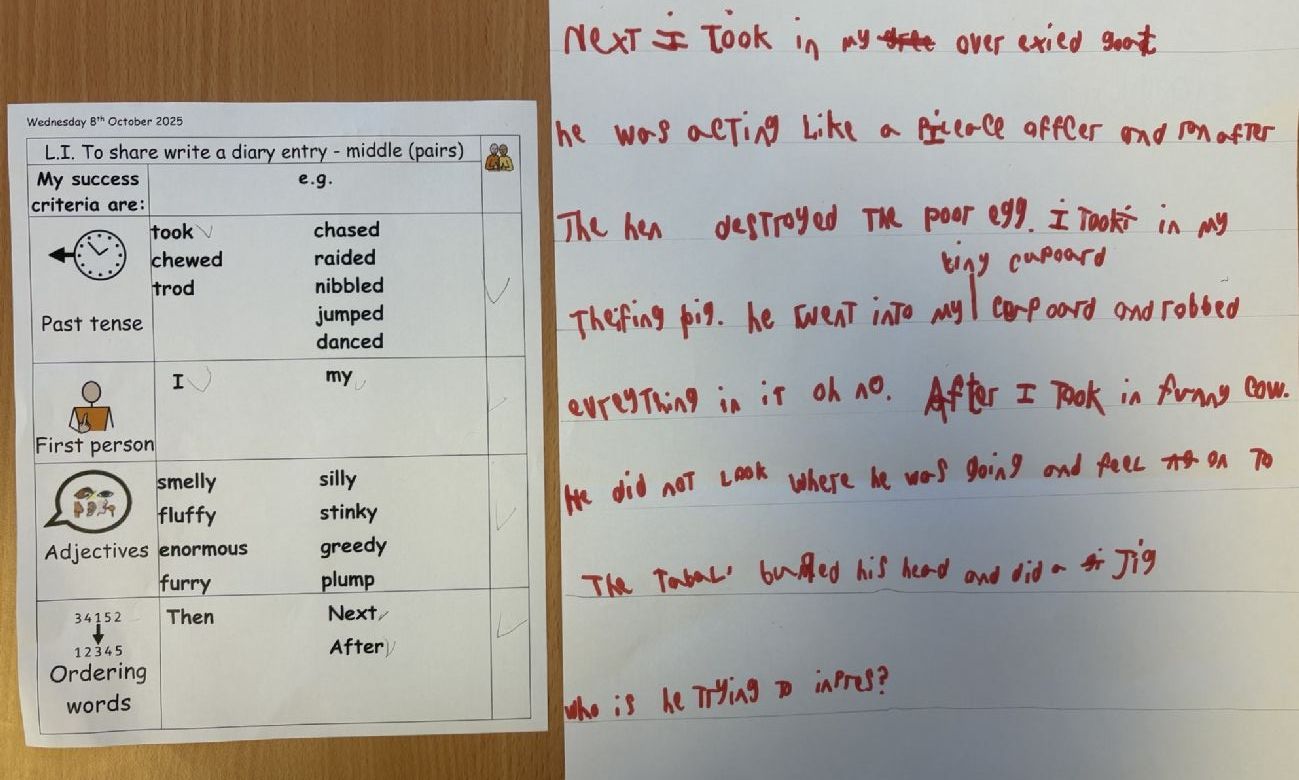 Wednesday 8th October 2025
L.I. To share write a diary entry - middle (pairs)
My success criteria are:
e.g.
Past tense
took chased
chewed raided
trod nibbled
jumped
danced
First person
I my
Adjectives
smelly silly
fluffy stinky
enormous greedy
furry plump
34152
12345
Ordering words
Then Next
After
Next I Took in my over exied goat
he was acTing Like a offcer and ran after
The hen destroyed The poor egg. I Took in my
tiny cupoard
Theifing pig. he went inTo my and robbed
evreyThing in iT oh no. After I Took in funny cow.
He did noT Look where he was going and feel on To
The Tabal. his head and did a Jig
who is he Trying To inpres?